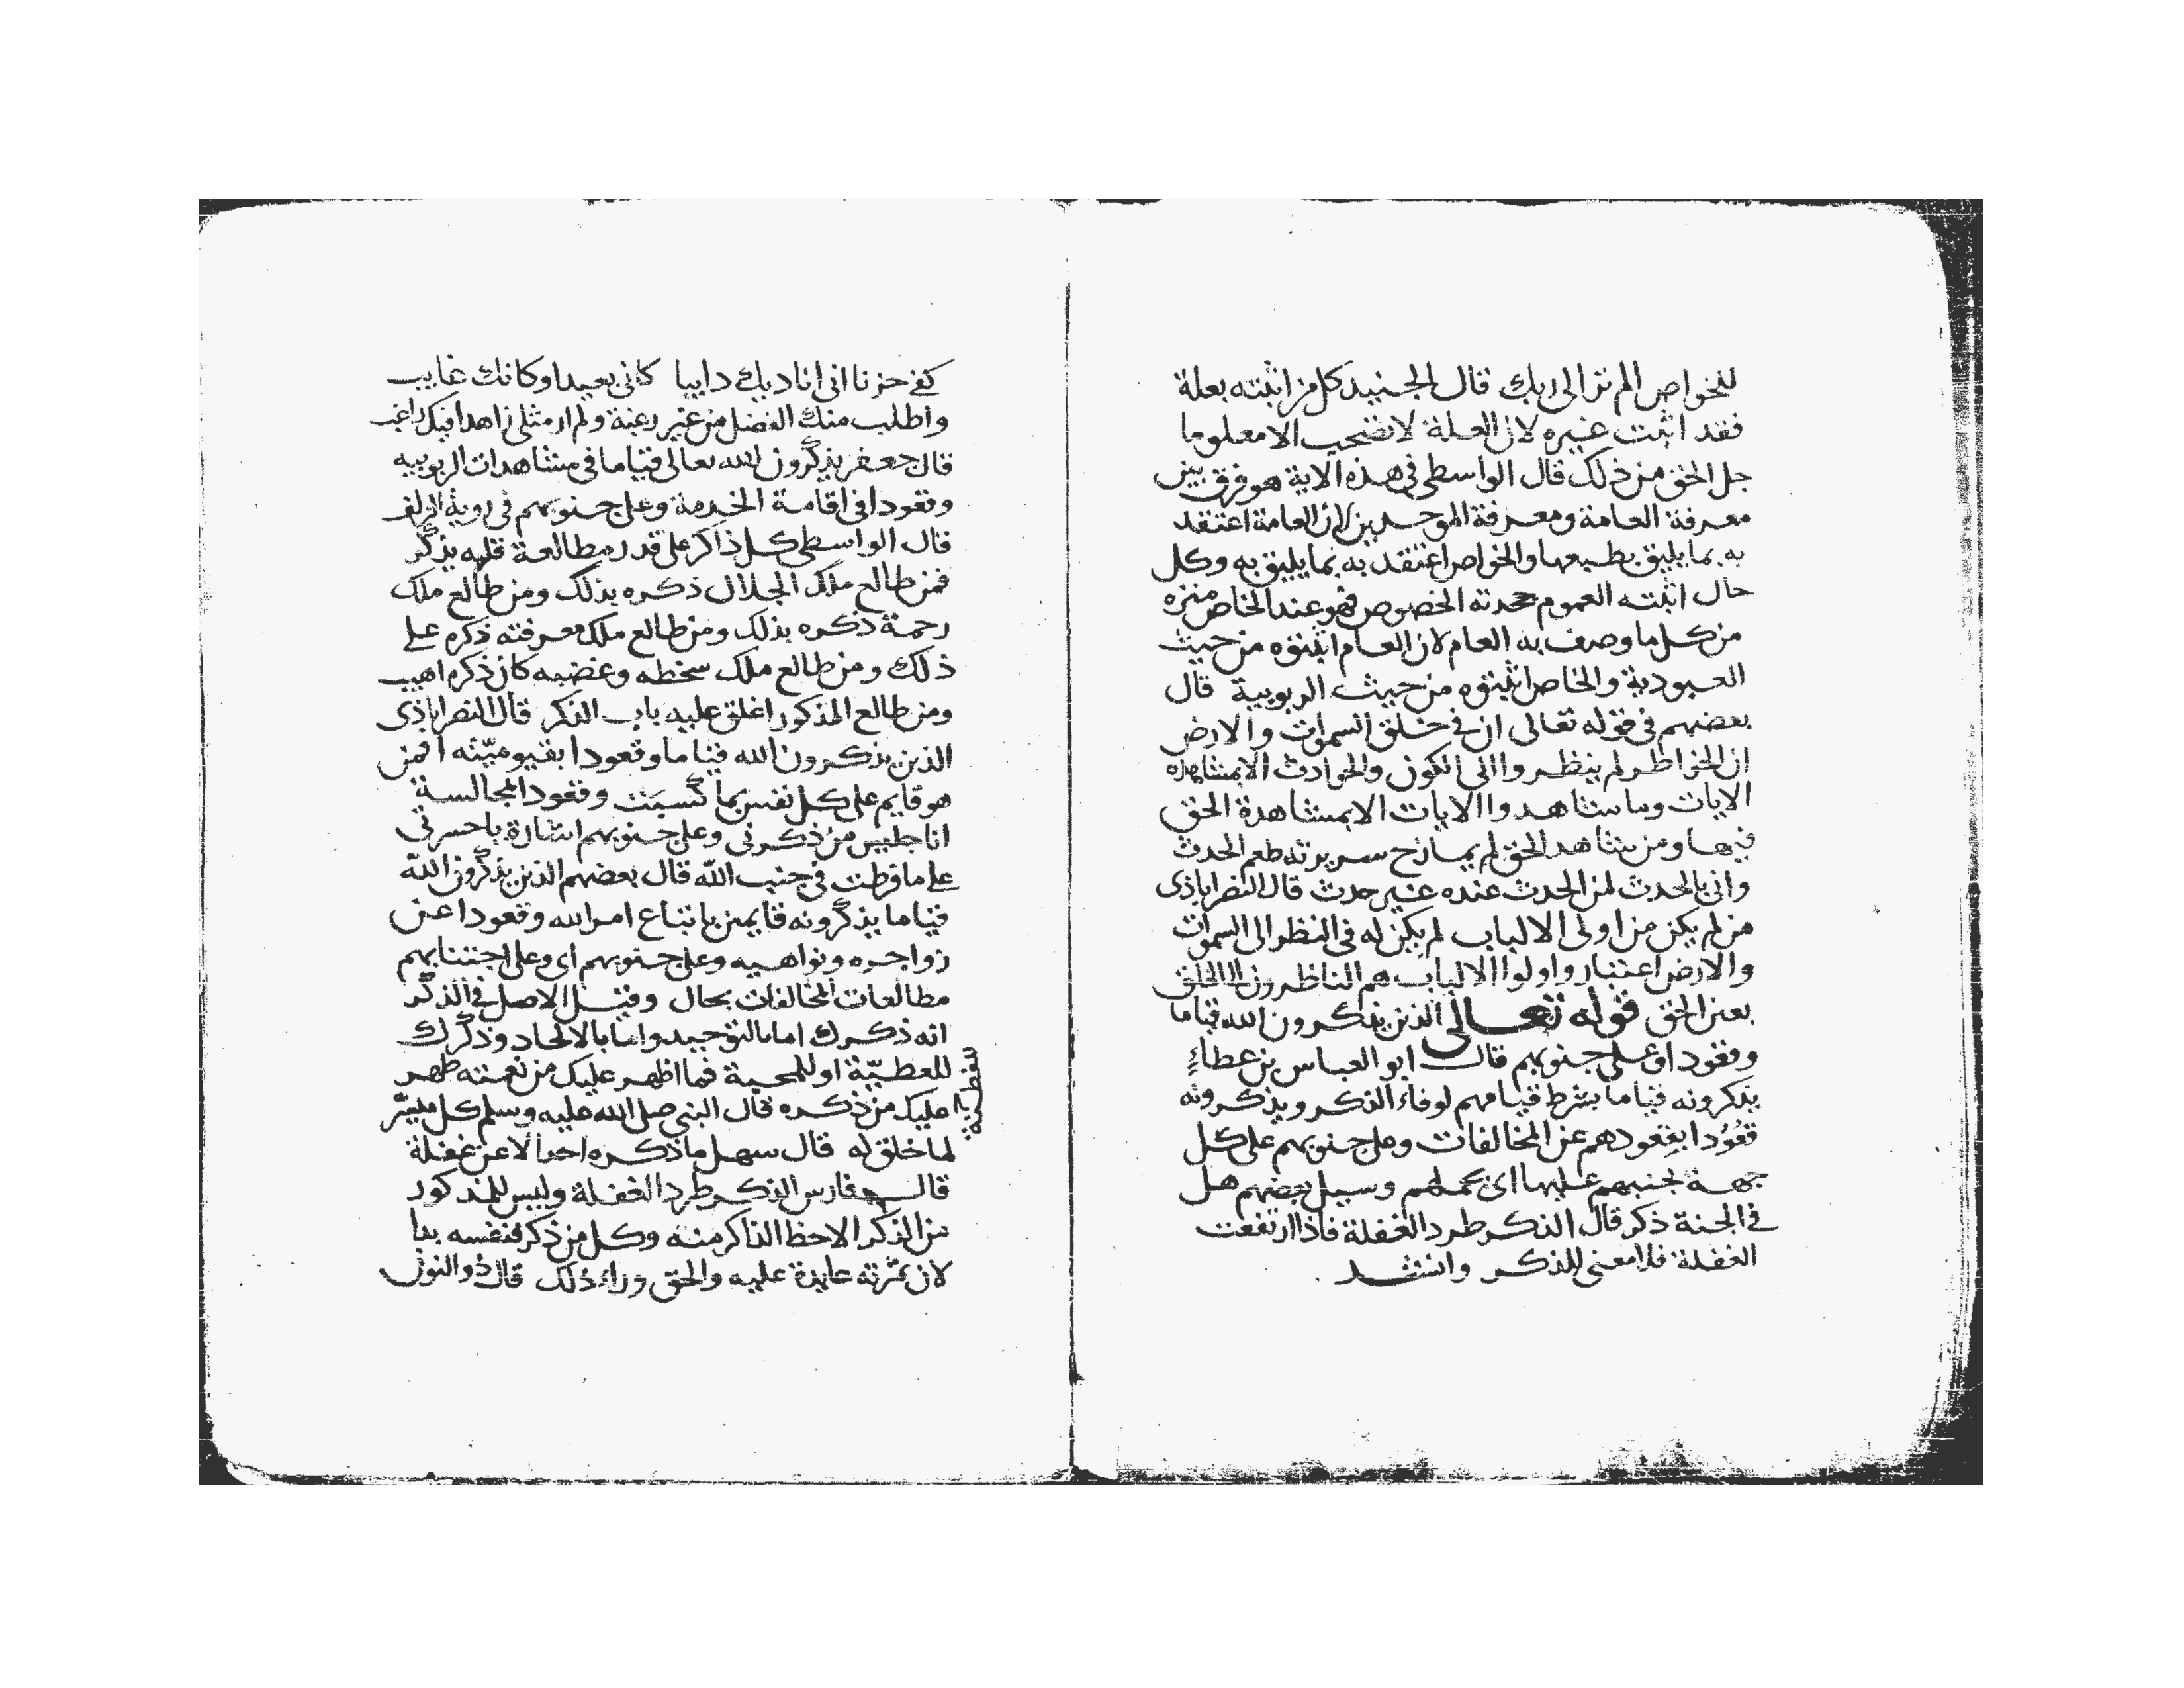 للخواص الم تر الى ربك قال الجنيد كل من اثبته بعلة
فقد اثبت غيره لان العلة لا تصحب الا معلوما
جل الحق من ذلك قال الواسطى فى هذه الاية هو فرق بين
معرفة العامة ومعرفة الموحدين لان العامة اعتقد
به بما يليق بطبعها والخواص اعتقد به بما يليق به وكل
حال اثبته العموم جحدته الخصوص فهو عند الخاص منزه
من كل ما وصف به العام لان العام اثبتوه من حيث
العبودية والخاص اثبتوه من حيث الربوبية قال
بعضهم فى قوله تعالى ان فى خلق السموات والارض
ان الخواطر لم ينظروا الى الكون والحوادث الا بمشاهدة
الايات وما شاهدوا الايات الا بمشاهدة الحق
فيها ومن شاهد الحق لم يمازح سريرته طعم الحدث
وانى بالحدث لمن الحدث عنده غير حدث قال النصراباذى
من لم يكن من اولى الالباب لم يكن له فى النظر الى السموات
والارض اعتبار واولوا الالباب هم الناظرون الى الخلق
بعين الحق قوله تعالى الذين يذكرون الله قياما
وقعودا وعلى جنوبهم قال ابو العباس بن عطاء
يذكرونه قياما بشرط قيامهم لوفاء الذكر ويذكرونه
قعُودا بقعودهم عن المخالفات وعلى جنوبهم على كل
جهة يجنبهم عليها اى يحملهم وسيل بعضهم هل
فى الجنة ذكر قال الذكر طرد الغفلة فاذا ارتفعت
الغفلة فلا معنى للذكر وانشد
كفى حزنا انى اناديك دايبا كانى بعيد او كانك غايب
واطلب منك الفضل من غير رغبة ولم ار مثلى زاهدا فيك راغب
قال جعفر يذكرون الله تعالى قياما فى مشاهدات الربوبيه
وقعودا فى اقامة الخدمة وعلى جنوبهم فى روية الزلف
قال الواسطى كل ذاكر على قدر مطالعة قلبه يذكر
فمن طالع ملك الجلال ذكره بذلك ومن طالع ملك
رحمة ذكره بذلك ومن طالع ملك معرفته ذكره على
ذلك ومن طالع ملك سخطه وغضبه كان ذكره اهيب
ومن طالع المذكور اغلق عليه باب الذكر قال النصراباذى
الذين يذكرون الله قياما وقعودا بقيوميّته افمن
هو قايم على كل نفس بما كسبَت وقعودا لمجالسة
انا جليس من ذكرنى وعلى جنوبهم اشارة يا حسرتى
على ما فرطت فى جنب الله قال بعضهم الذين يذكرون الله
قياما يذكرونه قايمين باتباع امر الله وقعودا عن
زواجره ونواهيه وعلى جنوبهم اى وعلى اجتنابهم
مطالعات المخالفات بحال وقيل الاصل فى الذكر
انه ذكرك اما بالتوحيد واما بالالحاد وذكرك
للعطيّة او للمحبة فما اظهر عليك من نعمته ظهر
عليك من ذكره قال النبى صلى الله عليه وسلم كل ميسّر
لما خلق له قال سهل ما ذكره احد الا عن غفلة
قال فارس الذكر طرد الغفلة وليس للمذكور
من الذكر الا حظ الذاكر منه وكل من ذكر فنفسه بدا
لان ثمرته عايدة عليه والحق وراء ذلك قال ذو النون